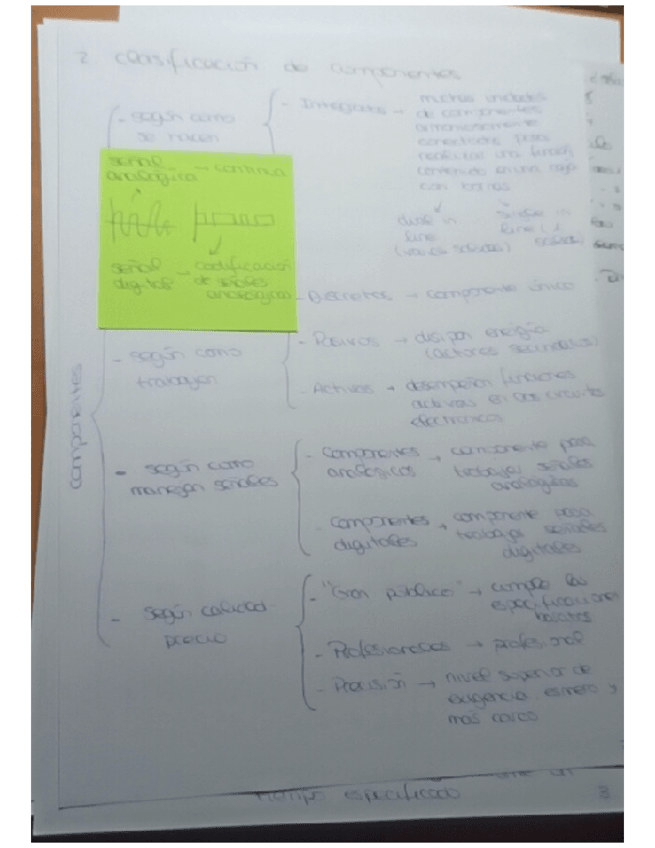 2. Clasificación de componentes
- según como
se hacen
- Integrados →
muchas unidades
de componentes
armoniosamente
conectados para
realizar una función
contenido en una caja
con
dual in
line
in
line
señal
analógica → continua
señal
digital → codificación
de señales
analógicas
- Discretos → componente único
- según como
trabajan
- Pasivos → disipan energía
(actores secundarios)
- Activos → desempeñan funciones
activas en los circuitos
electrónicos
conductores
- según como
manejan señales
- Componentes
analógicos → componente para
trabajar señales
analógicas
- Componentes
digitales → componente para
trabajar señales
digitales
- según calidad
precio
- "Gran público" → cumple las
especificaciones
- Profesionales → profesional
- Precisión → nivel superior de
exigencia, esmero y
más caro
tiempo especificado